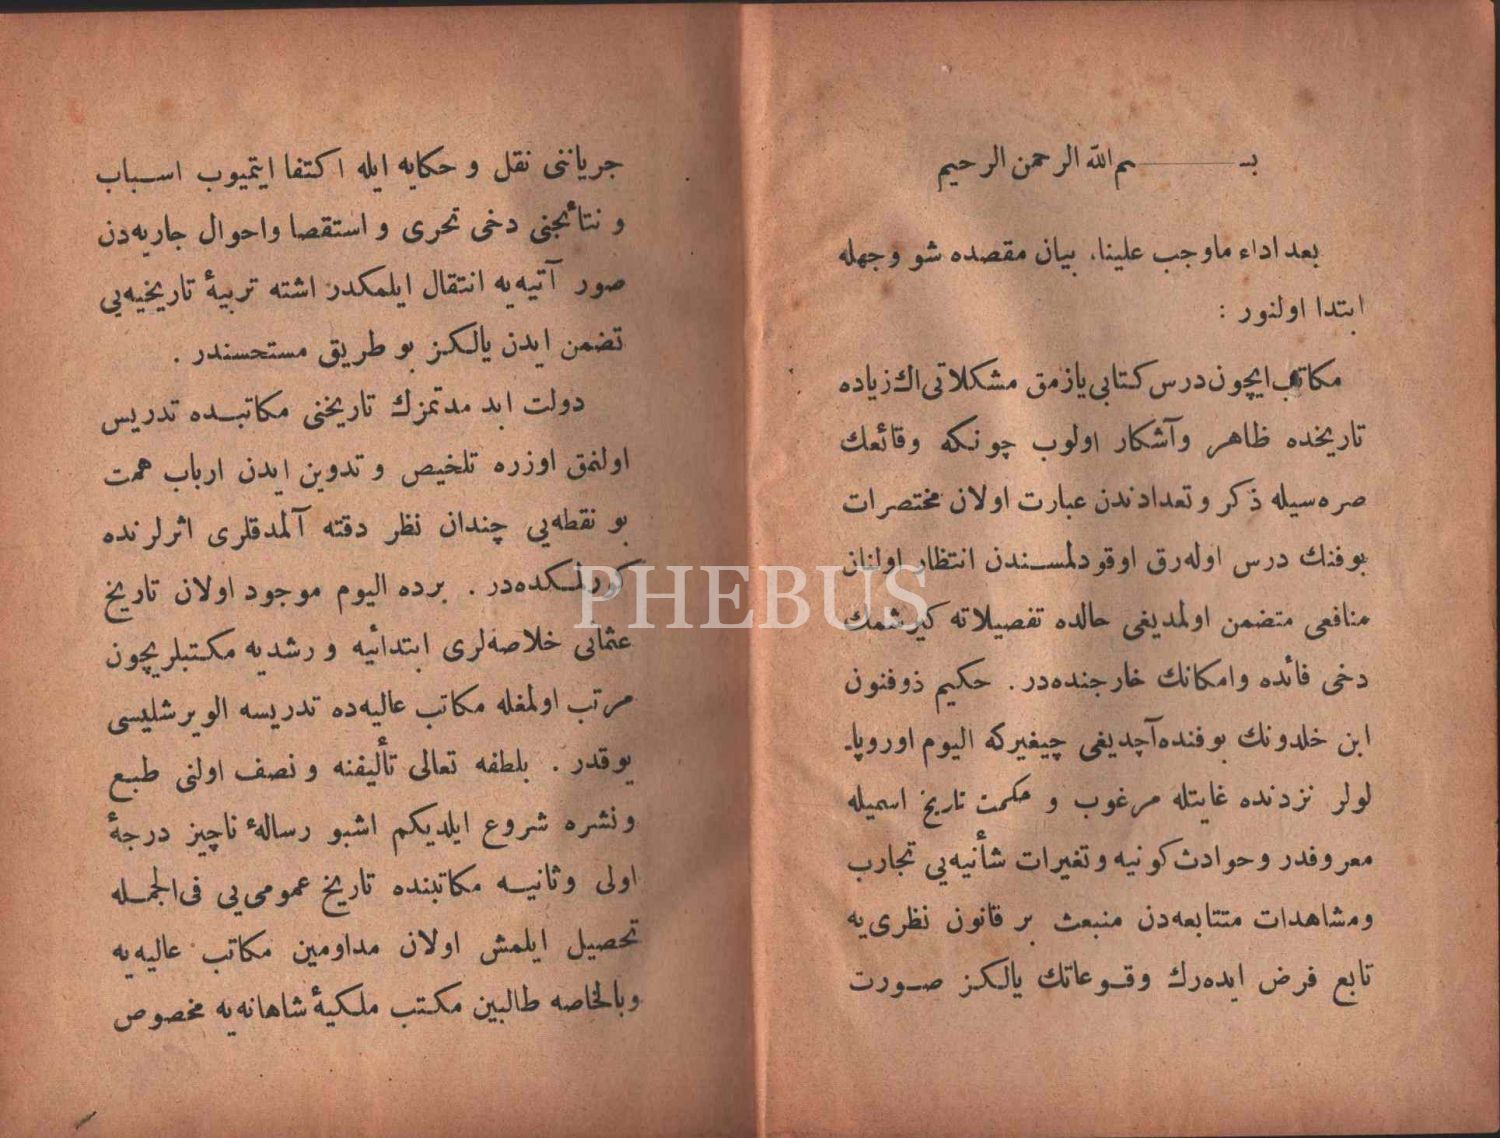 بسم الله الرحمن الرحيم
بعد اداء ماوجب علينا، بيان مقصده شو وجهله
ابتدا اولنور :
مكاتب ايچون درس كتابى يازمق مشكلاتى اك زياده
تاريخده ظاهر وآشكار اولوب چونكه وقائعك
صره سيله ذكر و تعدادندن عبارت اولان مختصرات
بوفنك درس اوله رق اوقودلمسندن انتظار اولنان
منافعى متضمن اولمديغى حالده تفصيلاته كيرشمك
دخى فائده وامكانك خارجنده در . حكيم ذوفنون
ابن خلدونك بوفنده آچديغى چيغيركه اليوم اوروپا-
لولر نزدنده غايتله مرغوب و حكمت تاريخ اسميله
معروفدر وحوادث كونيه و تغيرات شأنيه يى تجارب
ومشاهدات متتابعه دن منبعث بر قانون نظرى يه
تابع فرض ايده رك وقوعاتك يالكز صورت
جرياننى نقل و حكايه ايله اكتفا ايتميوب اسباب
و نتائجنى دخى تحرى و استقصا واحوال جاريه دن
صور آتيه يه انتقال ايلمكدر اشته تربيۀ تاريخيه يى
تضمن ايدن يالكز بو طريق مستحسندر .
دولت ابد مدتمزك تاريخنى مكاتبده تدريس
اولنمق اوزره تلخيص و تدوين ايدن ارباب همت
بو نقطه يى چندان نظر دقته آلمدقلرى اثرلرنده
كورلمكده در . برده اليوم موجود اولان تاريخ
عثمانى خلاصه لرى ابتدائيه و رشديه مكتبلريچون
مرتب اولمغله مكاتب عاليه ده تدريسه الويرشليسى
يوقدر . بلطفه تعالى تأليفنه و نصف اولنى طبع
ونشره شروع ايلديكم اشبو رسالۀ ناچيز درجۀ
اولى وثانيه مكاتبنده تاريخ عمومى يى فى الجمله
تحصيل ايلمش اولان مداومين مكاتب عاليه يه
وبالخاصه طالبين مكتب ملكيۀ شاهانه يه مخصوص
PHEBUS